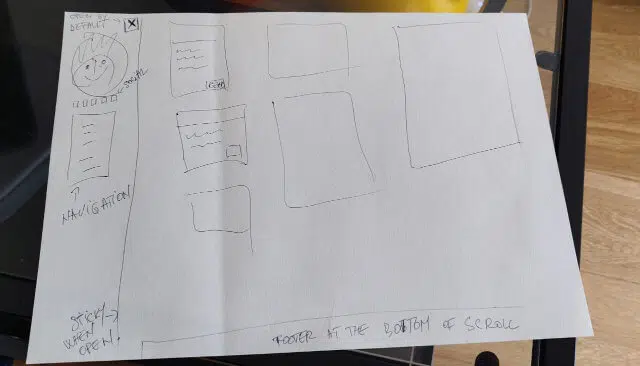 OPEN BY
DEFAULT →
X
SOCIAL
NAVIGATION
STICKY →
WHEN
OPEN.
FOOTER AT THE BOTTOM OF SCROLL